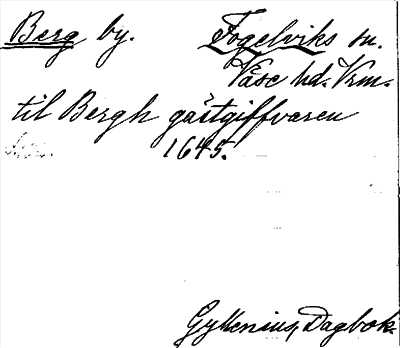 Berg by. Fogelviks sn.
Väse hd. Vrm.
til Bergh gästgiffvaren
1645.
Gyllenius, Dagbok